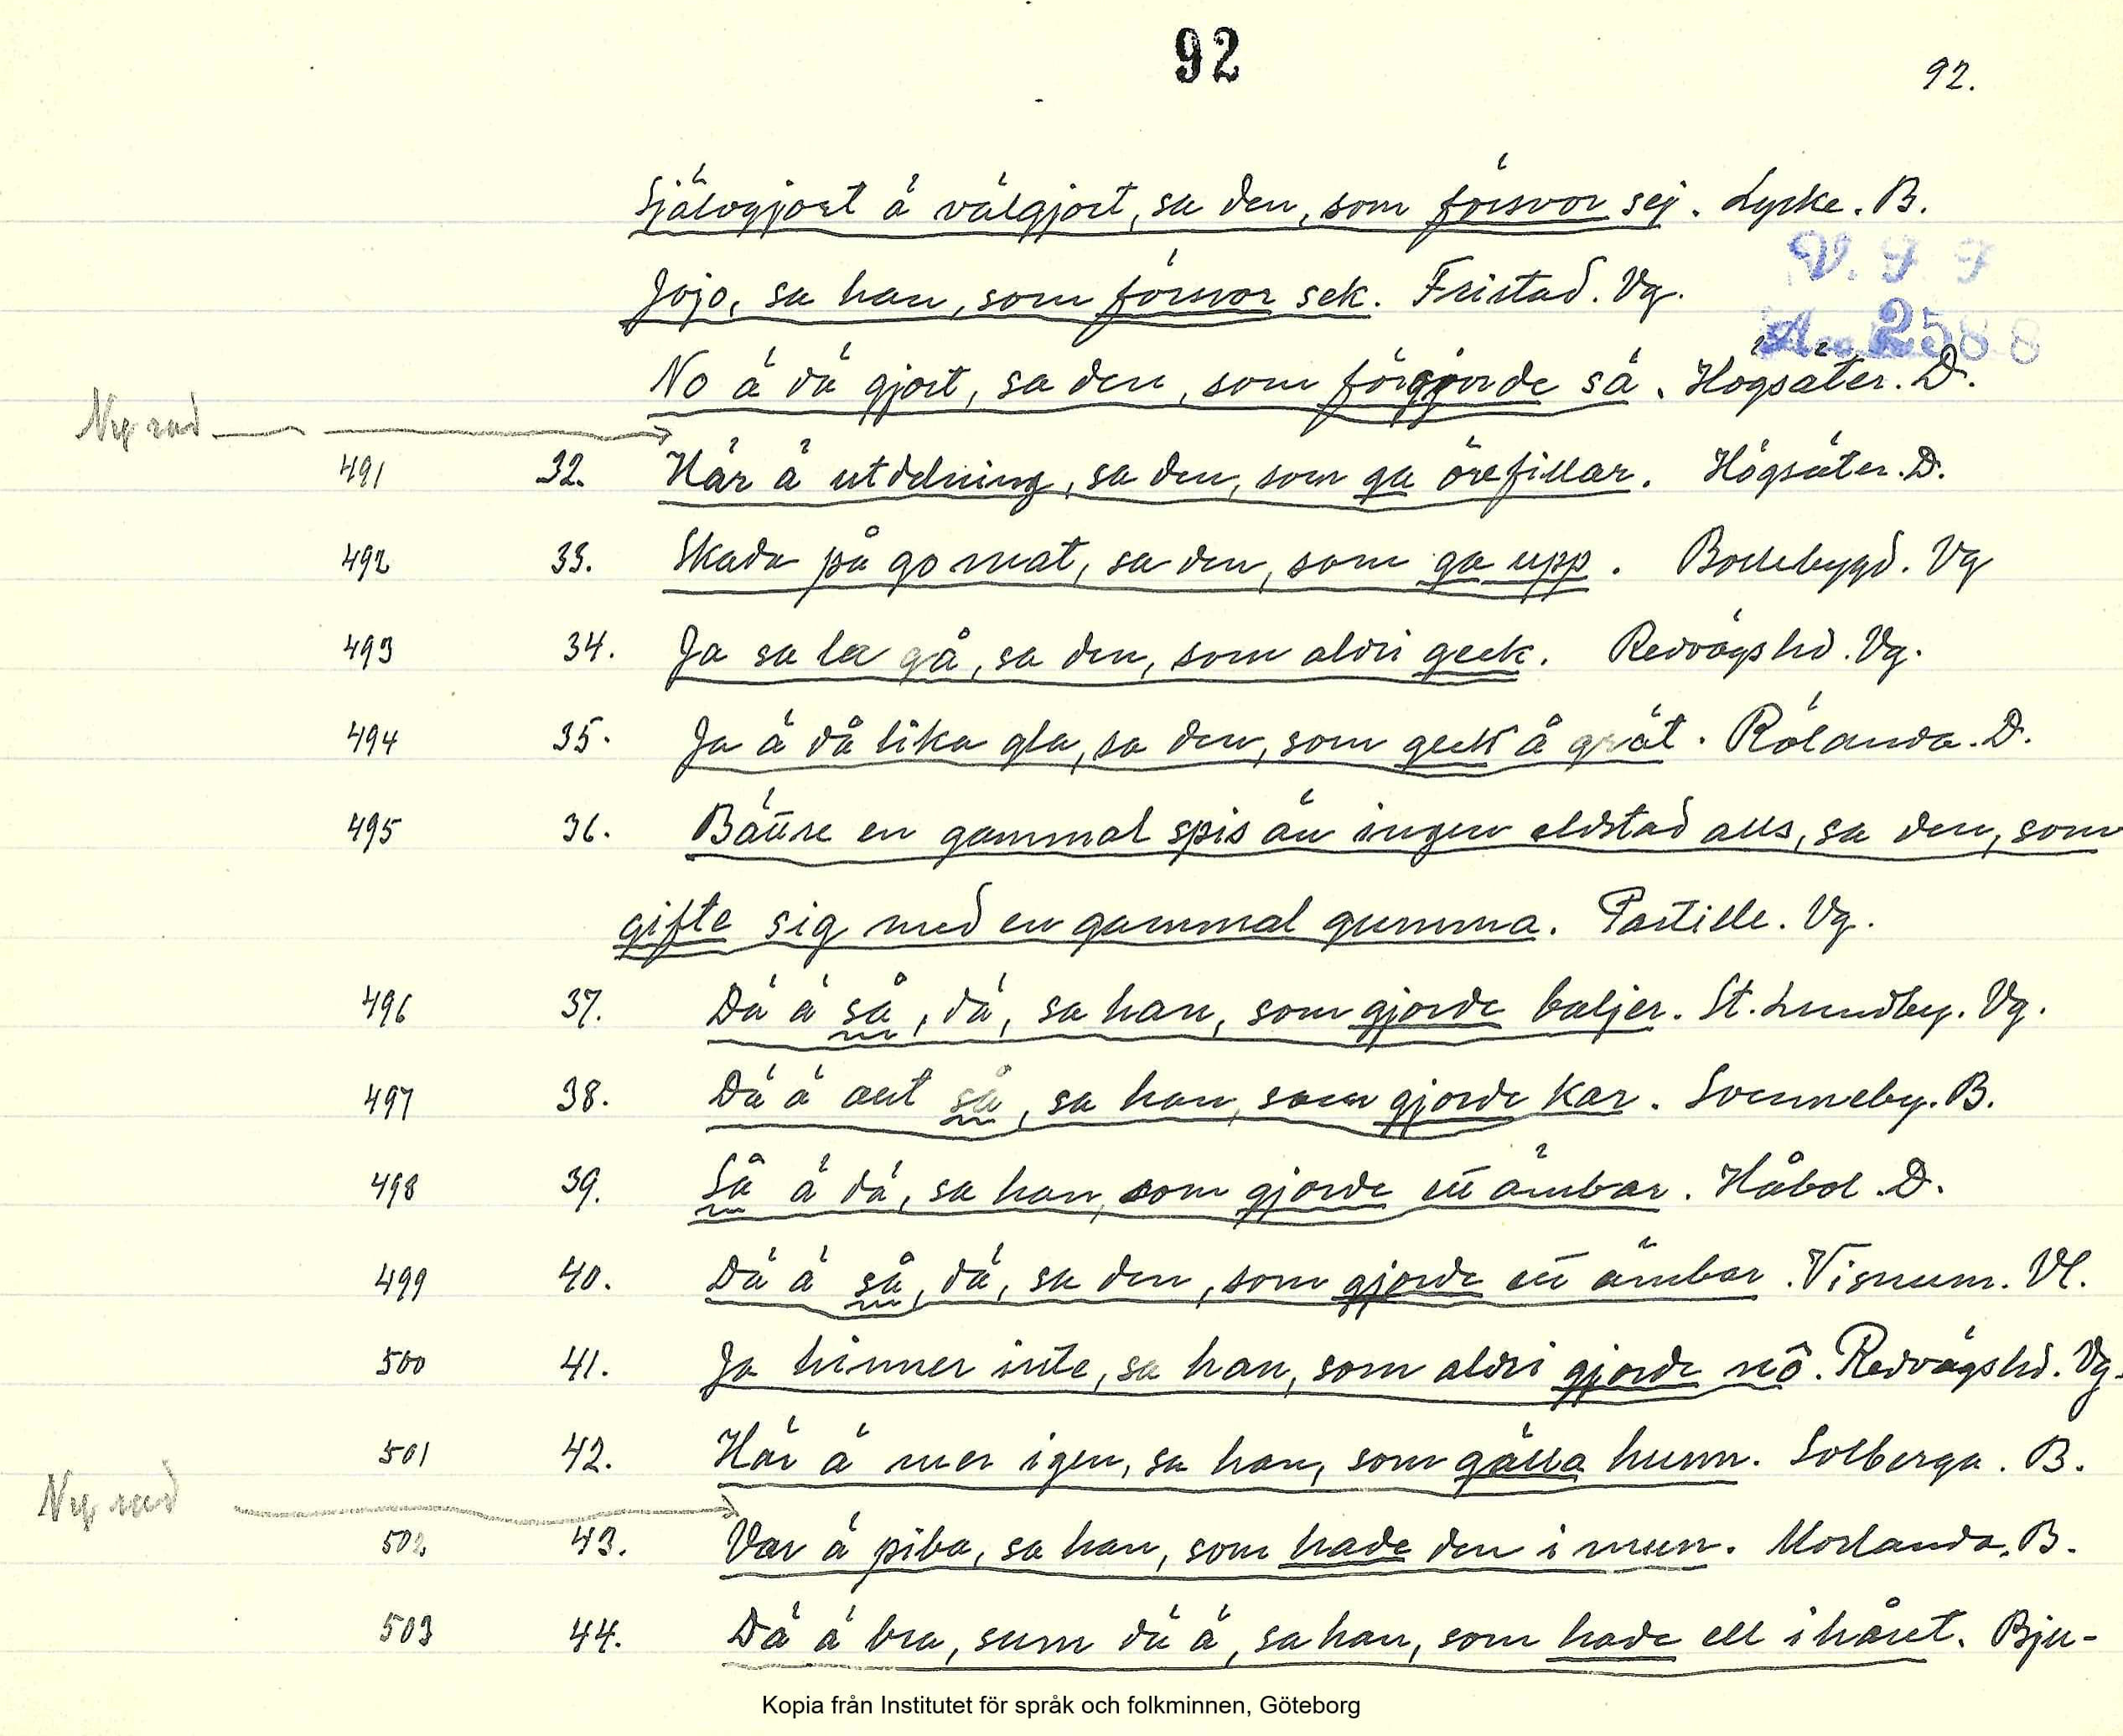 92
92.
Självgjort ä välgjort, sa den, som försvor sej. Lycke. B.
V. F F
Jojo, sa han, som försvor sek. Fristad. Vg.
2588
No ä dä gjort, sa den, som förgjorde sä. Högsäter. D.
Ny rad
491 32. Här ä utdelning, sa den, som ga örefillar. Högsäter. D.
492 33. Skada på go mat, sa den, som ga upp. Bollebygd. Vg
493 34. Ja sa la gå, sa den, som aldri geck. Redvägs hd. Vg.
494 35. Ja ä då lika gla, sa den, som geck å grät. Rölanda. D.
495 36. Bättre en gammal spis än ingen eldstad alls, sa den, som
gifte sig med en gammal gumma. Partille. Vg.
496 37. Dä ä så, dä, sa han, som gjorde baljer. St. Lundby. Vg.
497 38. Dä ä allt så, sa han, som gjorde kar. Svenneby. B.
498 39. Så ä dä, sa han, som gjorde ett ämbar. Håbol. D.
499 40. Dä ä så, dä, sa den, som gjorde ett ämbar. Visnum. Vl.
500 41. Ja hinner inte, sa han, som aldri gjorde nô. Redvägs hd. Vg.
501 42. Här ä mer igen, sa han, som gälla hunn. Solberga. B.
Ny rad
502 43. Var ä piba, sa han, som hade den i mun. Morlanda. B.
503 44. Dä ä bra, sum dä ä, sa han, som hade ell i håret. Bju-
Kopia från Institutet för språk och folkminnen, Göteborg